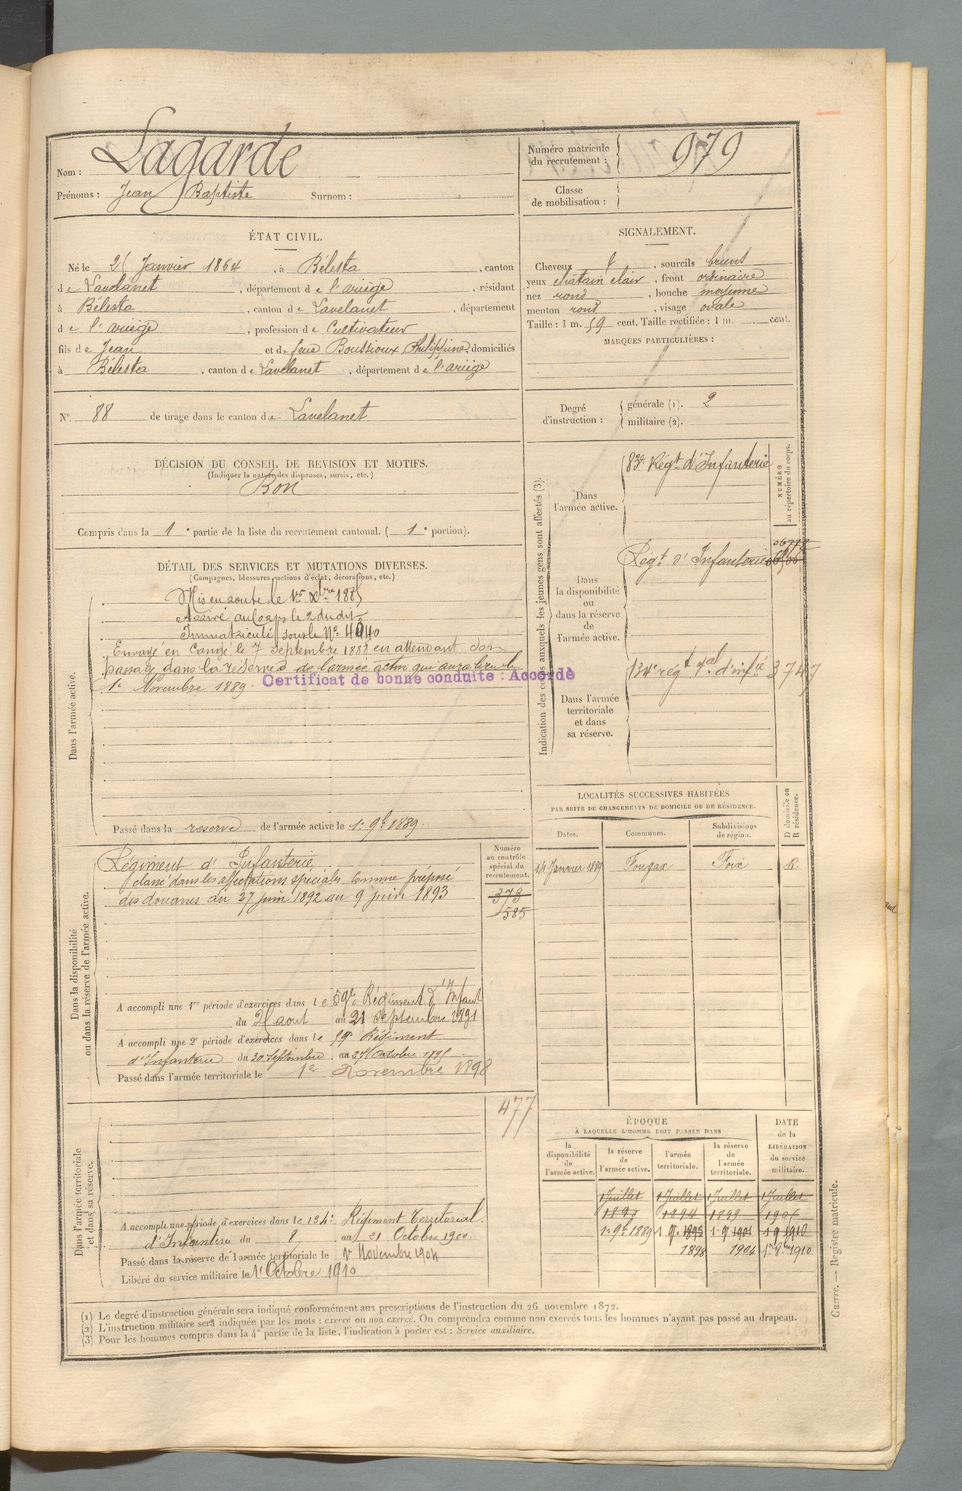 Nom : Lagarde
Prénoms : Jean Baptiste Surnom :
Numéro matricule du recrutement : 979
Classe de mobilisation :
ÉTAT CIVIL.
Né le Janvier 1864, à Bélesta, canton
de Lavelanet, département de l'ariège, résidant
à Bélesta, canton de Lavelanet, département
de l'ariège, profession de Cultivateur
fils de Jean et de feue Boussioux Philippine, domiciliés
à Bélesta, canton de Lavelanet, département de l'ariège
N° 88 de tirage dans le canton de Lavelanet
SIGNALEMENT.
Cheveux, sourcils bruns
yeux chatain clair, front ordinaire
nez rond, bouche moyenne
menton rond, visage ovale
Taille : 1 m. 59 cent. Taille rectifiée : 1 m. cent.
MARQUES PARTICULIÈRES :
Degré d'instruction : générale (1). 2
militaire (2).
DÉCISION DU CONSEIL DE REVISION ET MOTIFS.
(Indiquer la nature des dispenses, sursis, etc.)
Bon
Compris dans la 1e partie de la liste du recrutement cantonal. (1e portion).
DÉTAIL DES SERVICES ET MUTATIONS DIVERSES.
(Campagnes, blessures, actions d'éclat, décorations, etc.)
Dans l'armée active.
Mis en route le 1er Xbre 1885
Arrivé au Corps le 2 du dit
Immatriculé sous le N° 4940
Envoyé en Congé le 7 Septembre 1888 en attendant son
passage dans la réserve de l'armée active qui aura lieu le
1er Novembre 1889.
Certificat de bonne conduite : Accordé
Passé dans la reserve de l'armée active le 1er 9bre 1889.
Indication des corps auxquels les jeunes gens sont affectés (3).
NUMÉRO au répertoire du corps.
Dans l'armée active.
83e Régt d'Infanterie
Dans la disponibilité ou dans la réserve de l'armée active.
Régt d'Infanterie
Dans l'armée territoriale et dans sa réserve.
134e régt tal d'infie 3747
LOCALITÉS SUCCESSIVES HABITÉES
PAR SUITE DE CHANGEMENTS DE DOMICILE OU DE RÉSIDENCE.
Dates. Communes. Subdivisions de région. D domicile ou R résidence.
Janvier 1889 Fougax Foix R
Dans la disponibilité ou dans la réserve de l'armée active.
Numéro au contrôle spécial du recrutement.
Régiment d'Infanterie
classé dans les affectations spéciales comme préposé
des douanes du 27 juin 1892 au 9 juin 1893
373
585
A accompli une 1re période d'exercices dans le 59e Régiment d'Infant
du août au 21 septembre 1891
A accompli une 2e période d'exercices dans le 59e Régiment
d'Infanterie du 30 Septembre au 27 Octobre 1895
Passé dans l'armée territoriale le 1er Novembre 1898
477
Dans l'armée territoriale et dans sa réserve.
A accompli une période d'exercices dans le 134e Régiment Territorial
d'Infanterie du 8 au 21 Octobre 1900.
Passé dans la réserve de l'armée territoriale le 1er Novembre 1904
Libéré du service militaire le 1er Octobre 1910
ÉPOQUE
À LAQUELLE L'HOMME DOIT PASSER DANS
la disponibilité de l'armée active. la réserve de l'armée active. l'armée territoriale. la réserve de l'armée territoriale.
DATE de la LIBÉRATION du service militaire.
1 Juillet 1 Juillet 1 Juillet 1 Juillet
1 9bre 1889
1898 1904 1er 8bre 1910
(1) Le degré d'instruction générale sera indiqué conformément aux prescriptions de l'instruction du 26 novembre 1872.
(2) L'instruction militaire sera indiquée par les mots : exercé ou non exercé. On comprendra comme non exercés tous les hommes n'ayant pas passé au drapeau.
(3) Pour les hommes compris dans la 4e partie de la liste, l'indication à porter est : Service auxiliaire.
Guerre. — Registre matricule.